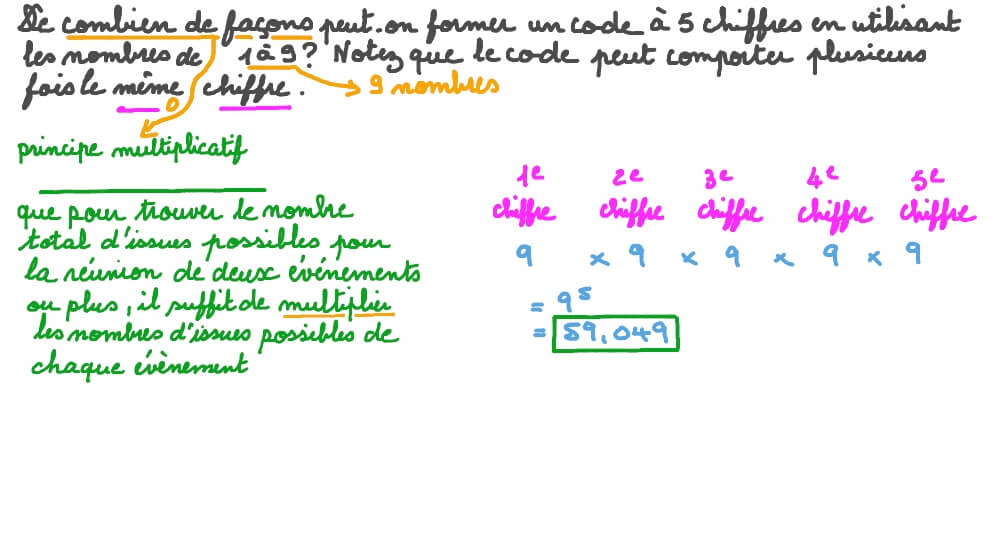 De combien de façons peut-on former un code à 5 chiffres en utilisant
les nombres de 1 à 9 ? Notez que le code peut comporter plusieurs
fois le même chiffre.
→ 9 nombres
principe multiplicatif
que pour trouver le nombre
total d'issues possibles pour
la réunion de deux événements
ou plus, il suffit de multiplier
les nombres d'issues possibles de
chaque évènement
1e 2e 3e 4e 5e
chiffre chiffre chiffre chiffre chiffre
9 × 9 × 9 × 9 × 9
= 9⁵
= 59,049